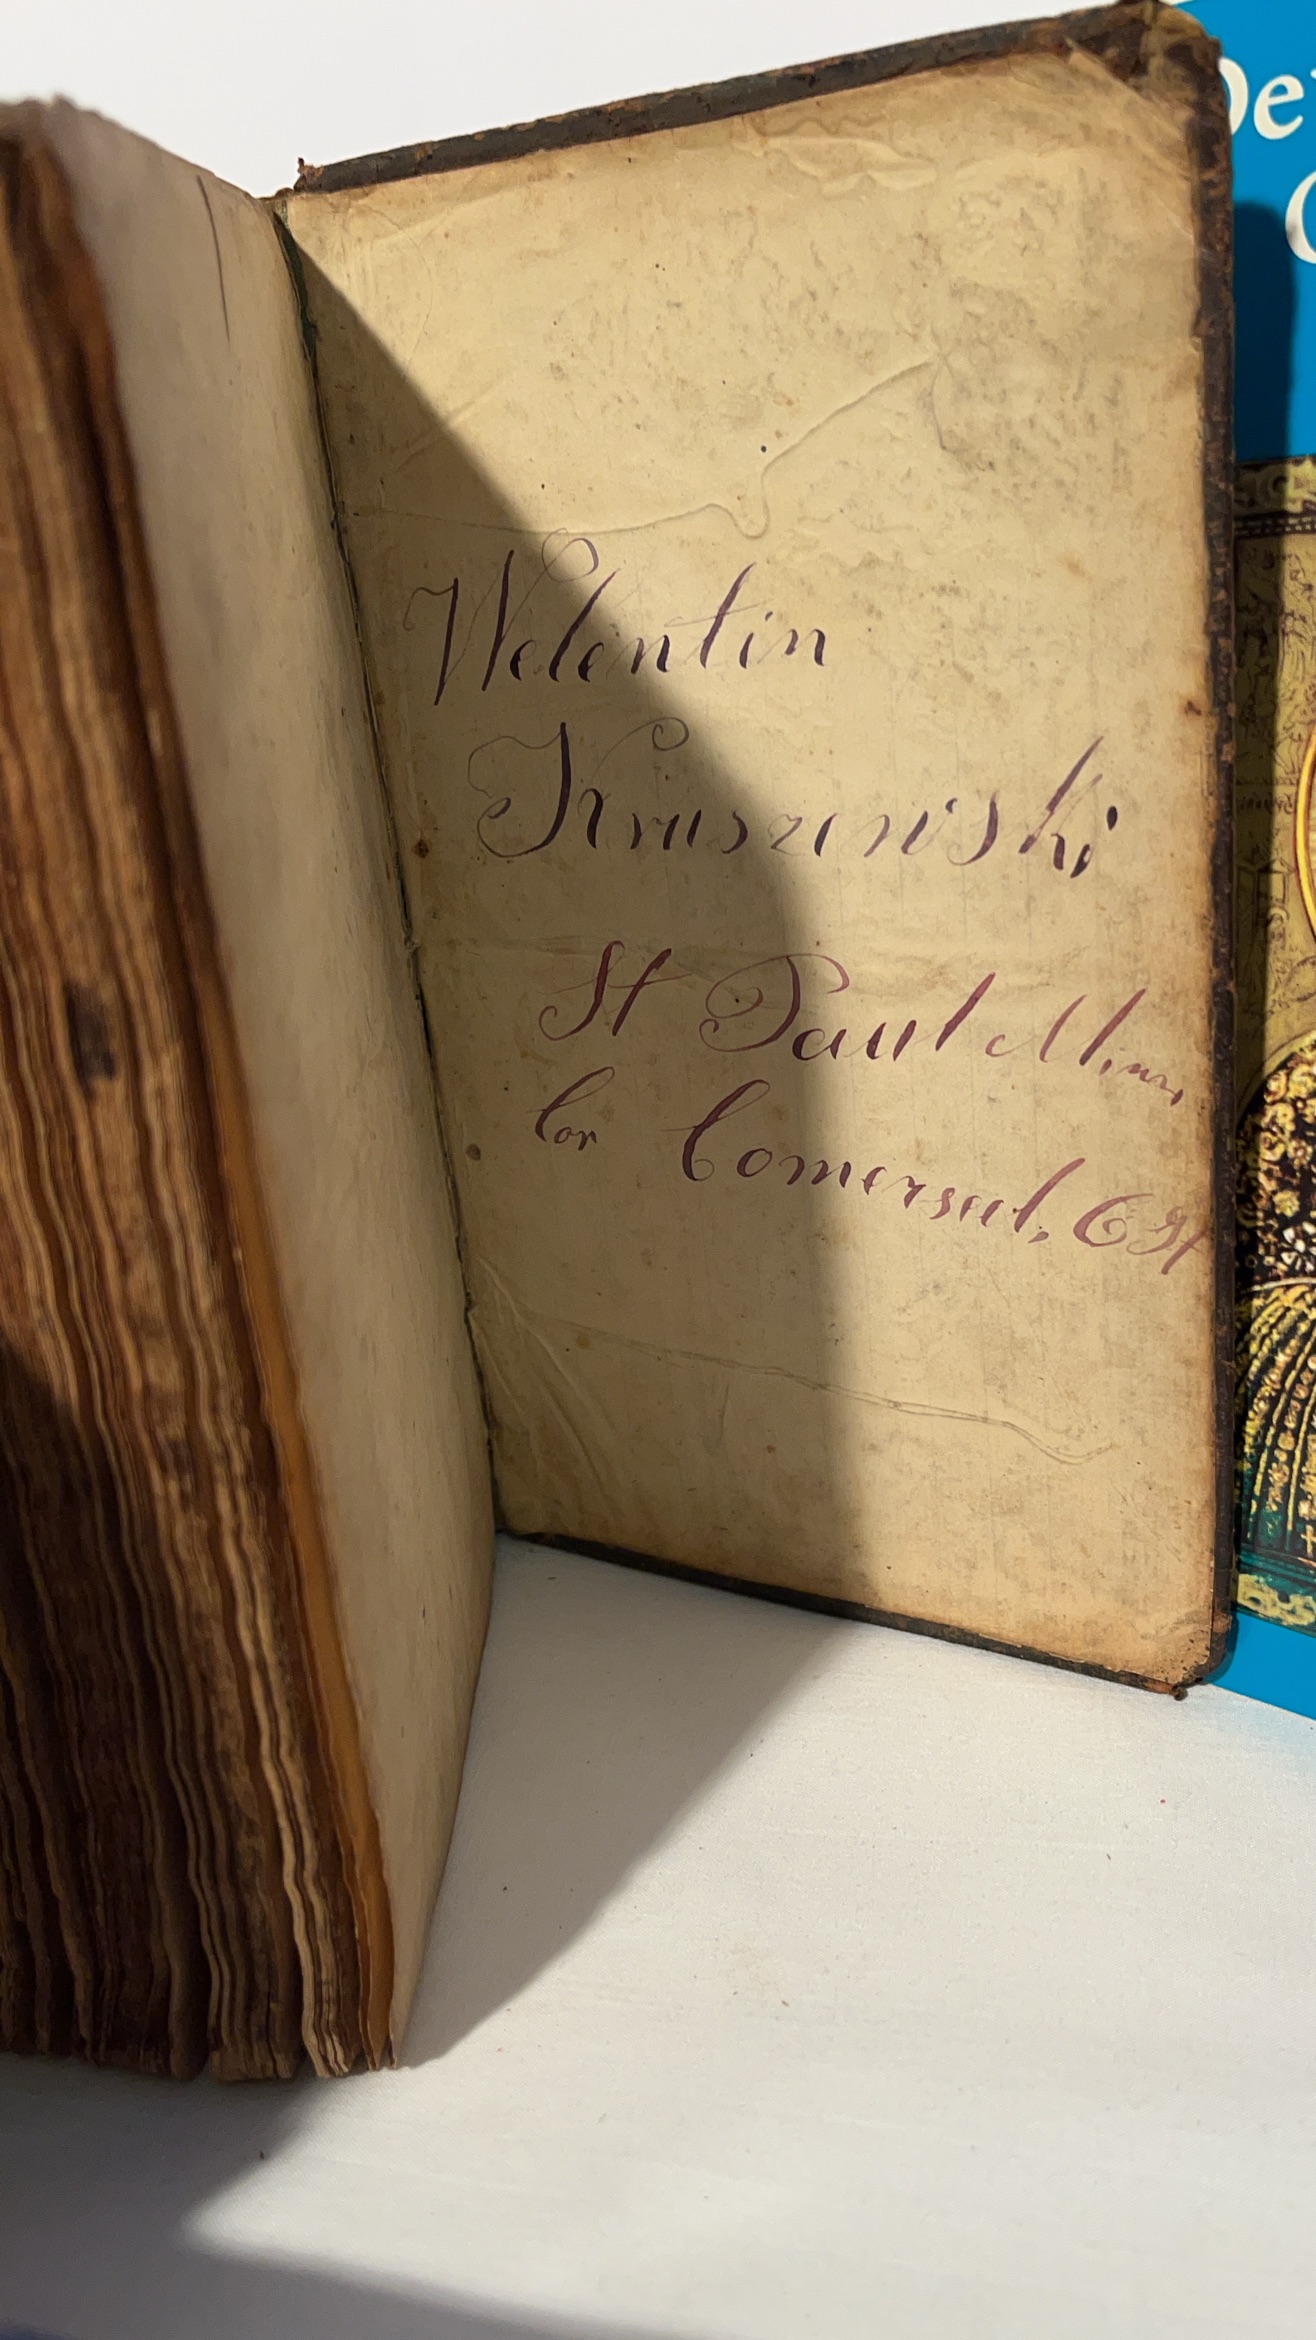 Welentin
Kruszewski
St Paul Minn,
Cor Comersial, 6 St
De